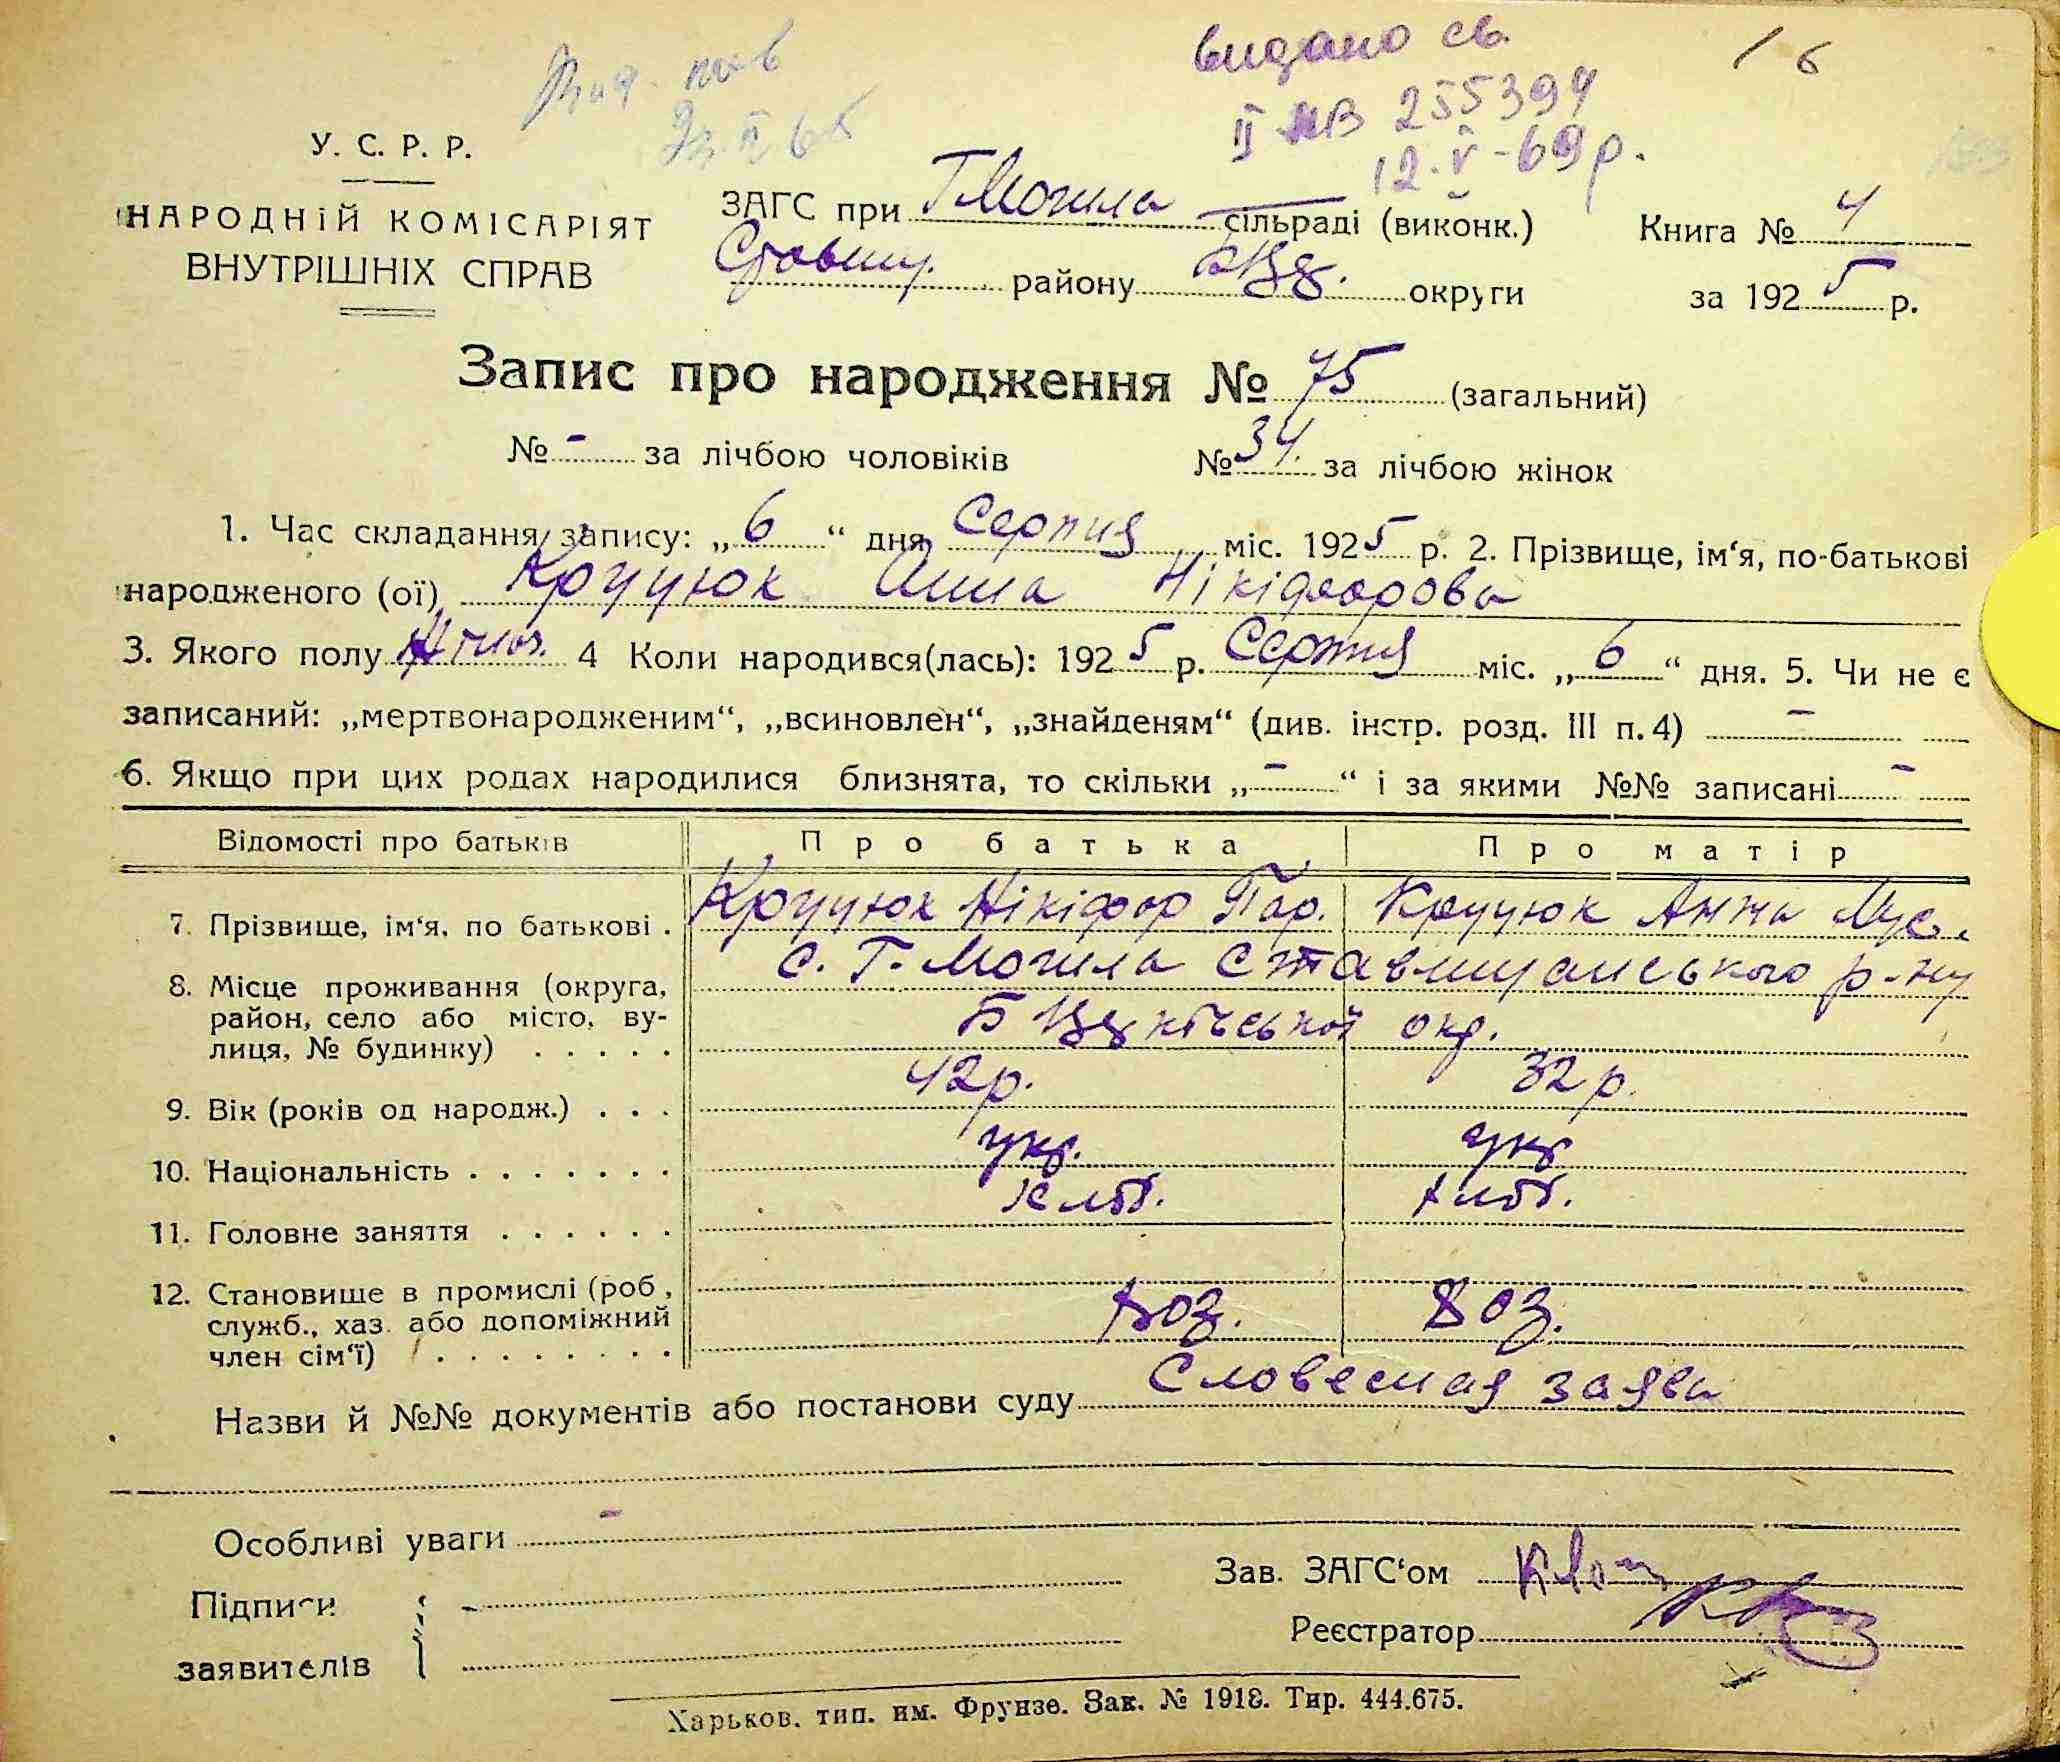 видано св.
1 6
II МВ 255394
12.V-69р.
У. С. Р. Р.
НАРОДНІЙ КОМІСАРІЯТ
ВНУТРІШНІХ СПРАВ
ЗАГС при Г Могила сільраді (виконк.) Книга № 4
Ставищ. району БЦд. округи за 1925 р.
Запис про народження № 75 (загальний)
№ - за лічбою чоловіків № 34. за лічбою жінок
1. Час складання запису: „6“ дня Серпня міс. 1925 р. 2. Прізвище, ім‘я, по-батькові
народженого (ої) Круцюк Анна Нікіфорова
3. Якого полу жіноч. 4 Коли народився(лась): 1925 р. Серпня міс. „6“ дня. 5. Чи не є
записаний: „мертвонародженим“, „всиновлен“, „знайденям“ (див. інстр. розд. III п. 4) -
6. Якщо при цих родах народилися близнята, то скільки „-“ і за якими №№ записані -
Відомості про батьків Про батька Про матір
7. Прізвище, ім‘я, по батькові . Круцюк Нікіфор Пар. Круцюк Анна Мус.
8. Місце проживання (округа, с. Г. Могила Ставищанського р-ну
район, село або місто, ву-
лиця, № будинку) . . . . . Б Церківської окр.
9. Вік (років од народж.) . . . 42р. 32р.
10. Національність . . . . . . . укр. укр
11. Головне заняття . . . . . . хліб. хліб.
12. Становище в промислі (роб,
служб., хаз. або допоміжний
член сім‘ї) . . . . . . . . хоз. хоз.
Назви й №№ документів або постанови суду Словесная заява
Особливі уваги -
Підписи
заявителів
Зав. ЗАГС‘ом
Реєстратор
Харьков. тип. им. Фрунзе. Зак. № 1918. Тир. 444.675.